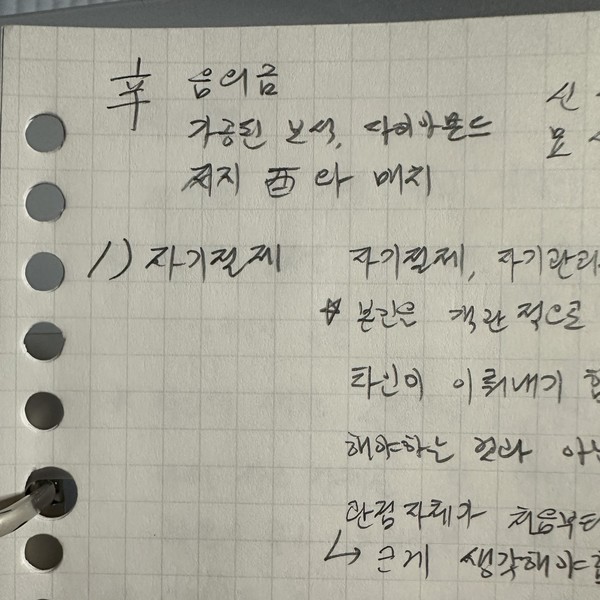 辛 음의금
가공된 보석, 다이아몬드 신
지지 酉와 매치 묘
1) 자기절제 자기절제, 자기관리
☆ 본인은 객관적으로
타인이 이뤄내기 힘
해야하는 것과 아닌
관점자체가 처음부터
↳ 크게 생각해야함